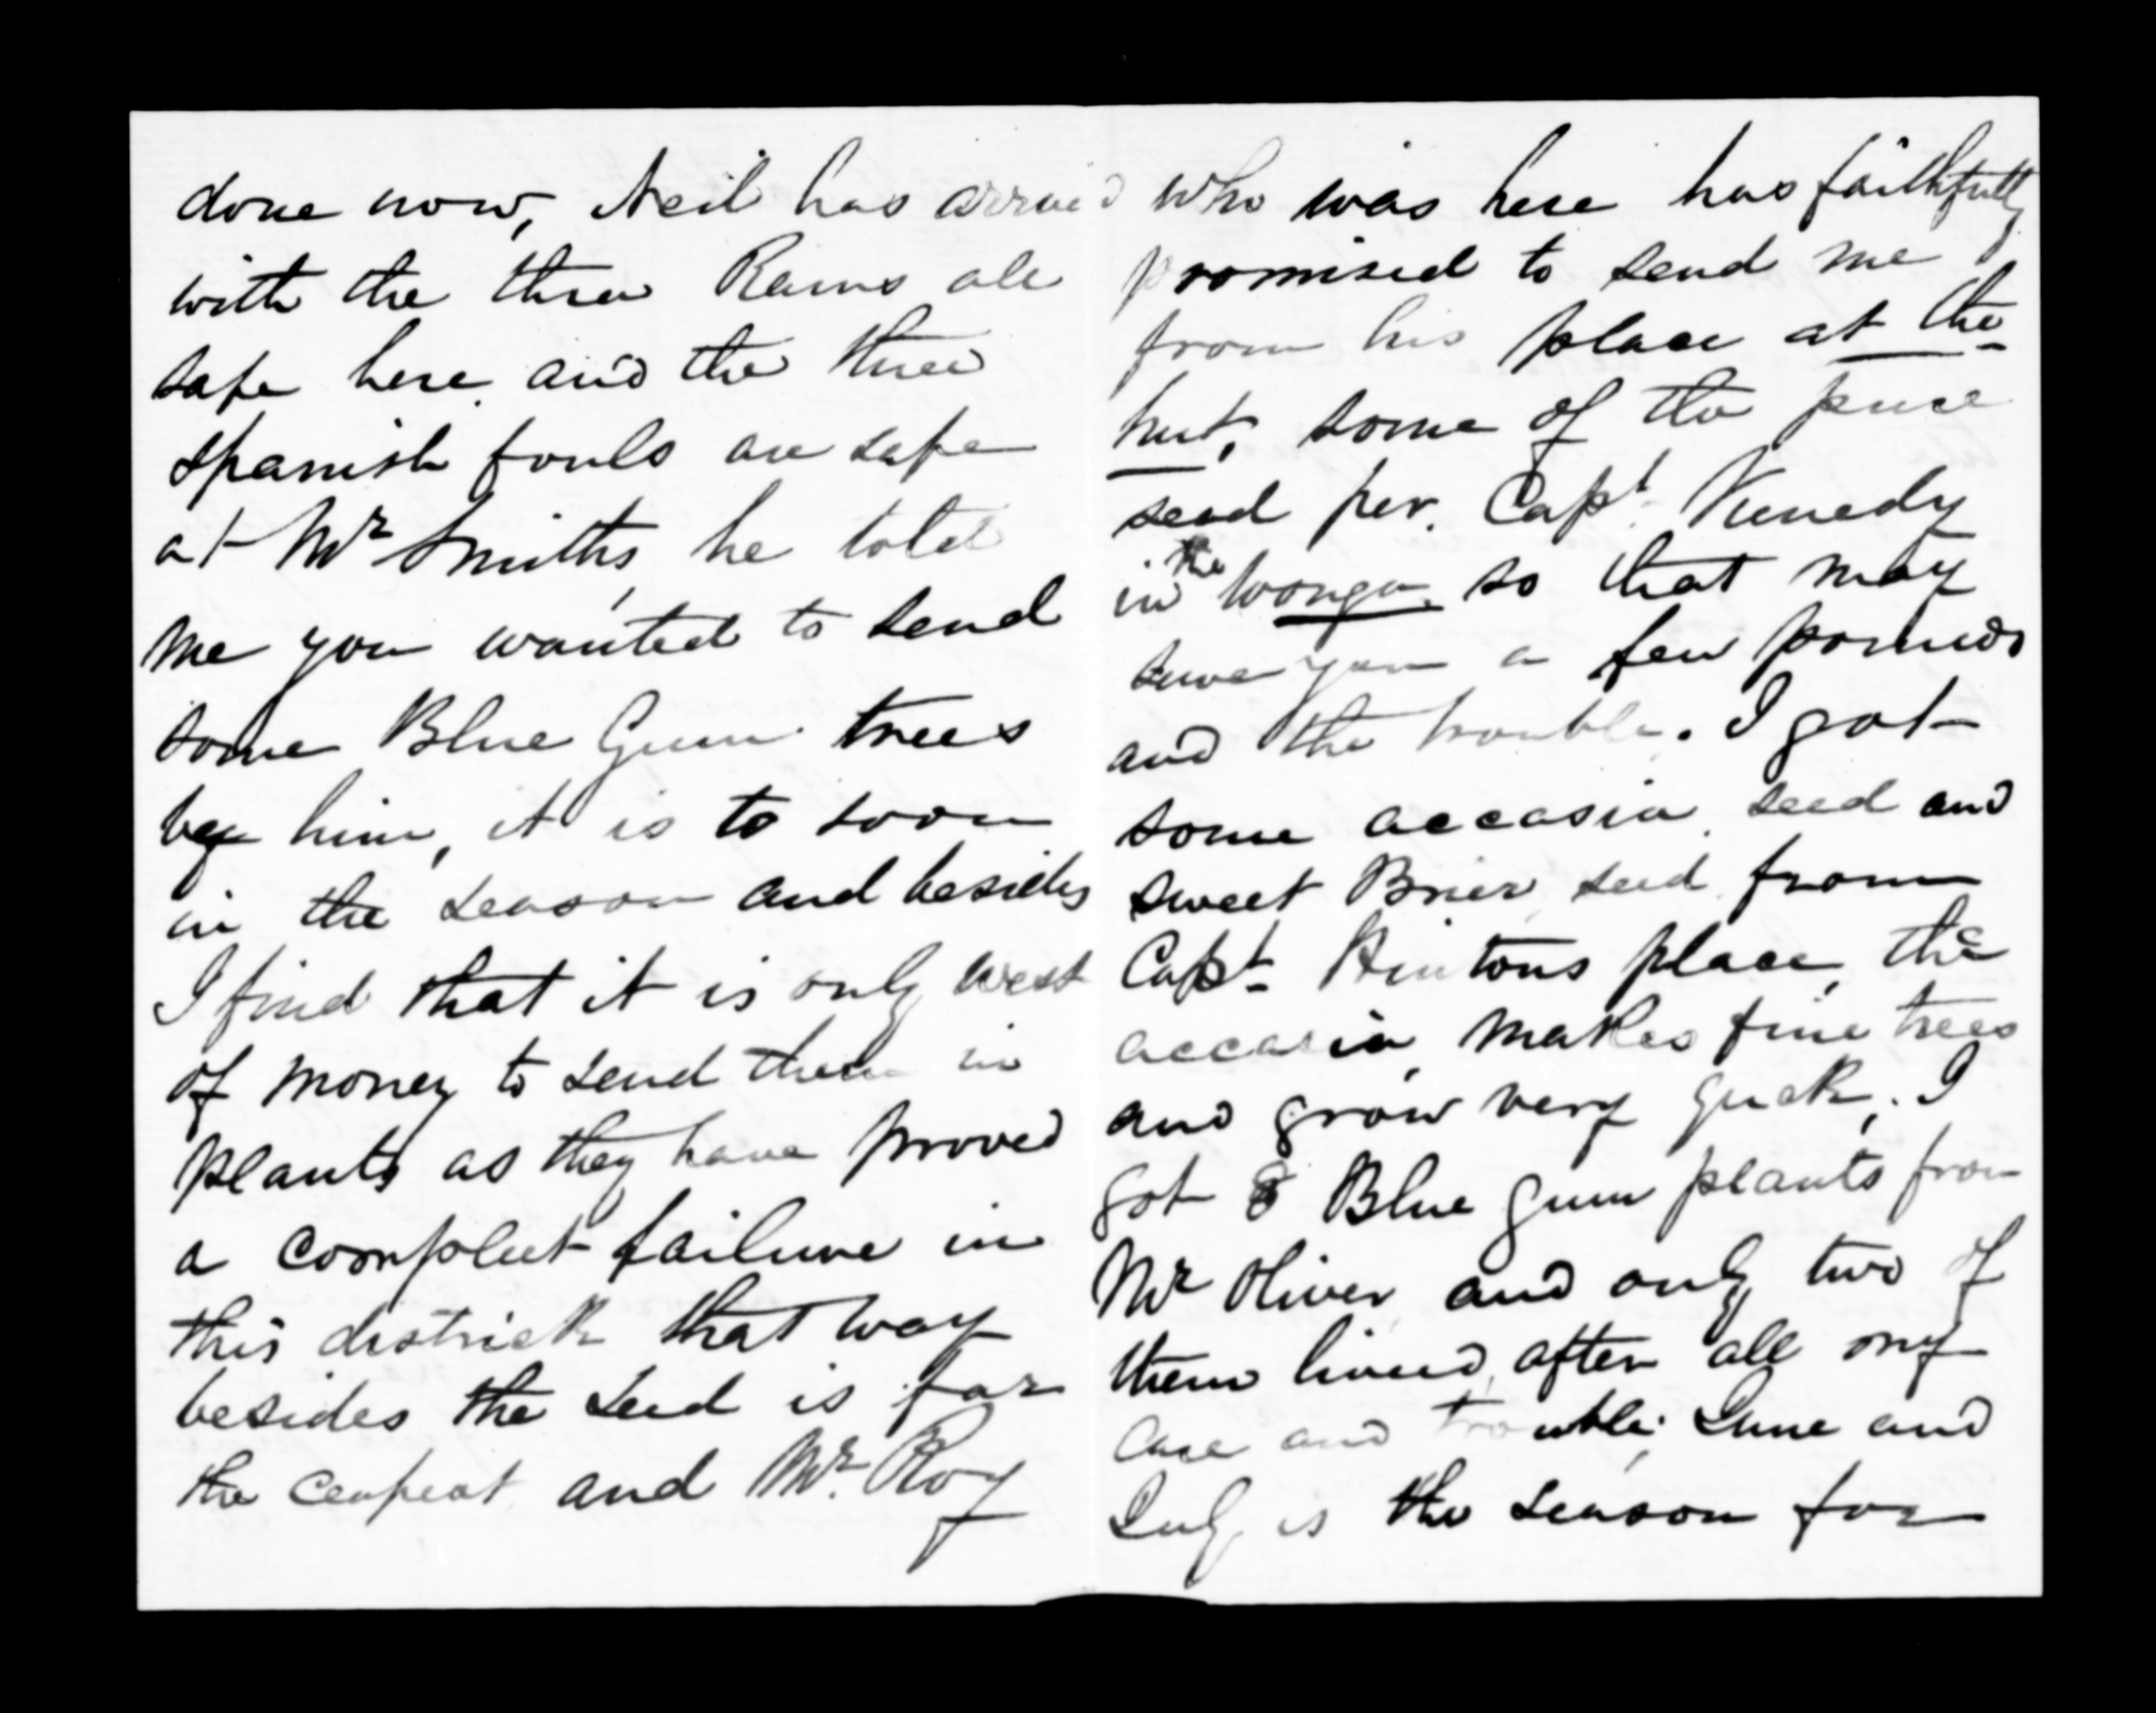 done now, Neil has arrived
with the three Rams all
safe here and the three
spanish fouls are safe
at Mr Smiths, he told
me you wanted to send
some Blue Gum trees
by him, it is to soon
in the season and besides
I find that it is only west
of money to send them in
plants as they have proved
a compleet failure in
this districk that way
besides the seed is far
the ceapest and Mr. Roy
who was here has faithfully
promised to send me
from his place at the
hut, some of the pure
seed per. Capt. Kenedy
in the Wonga so that may
save you a few pounds
and the trouble. I got
some accasia seed and
sweet Brier seed from
Capt. Hintons place, the
accasia makes fine trees
and grow very quck, I
got 8 Blue gum plants from
Mr Oliver and only two of
them lived, after all my
care and trouble; June and
July is the season for